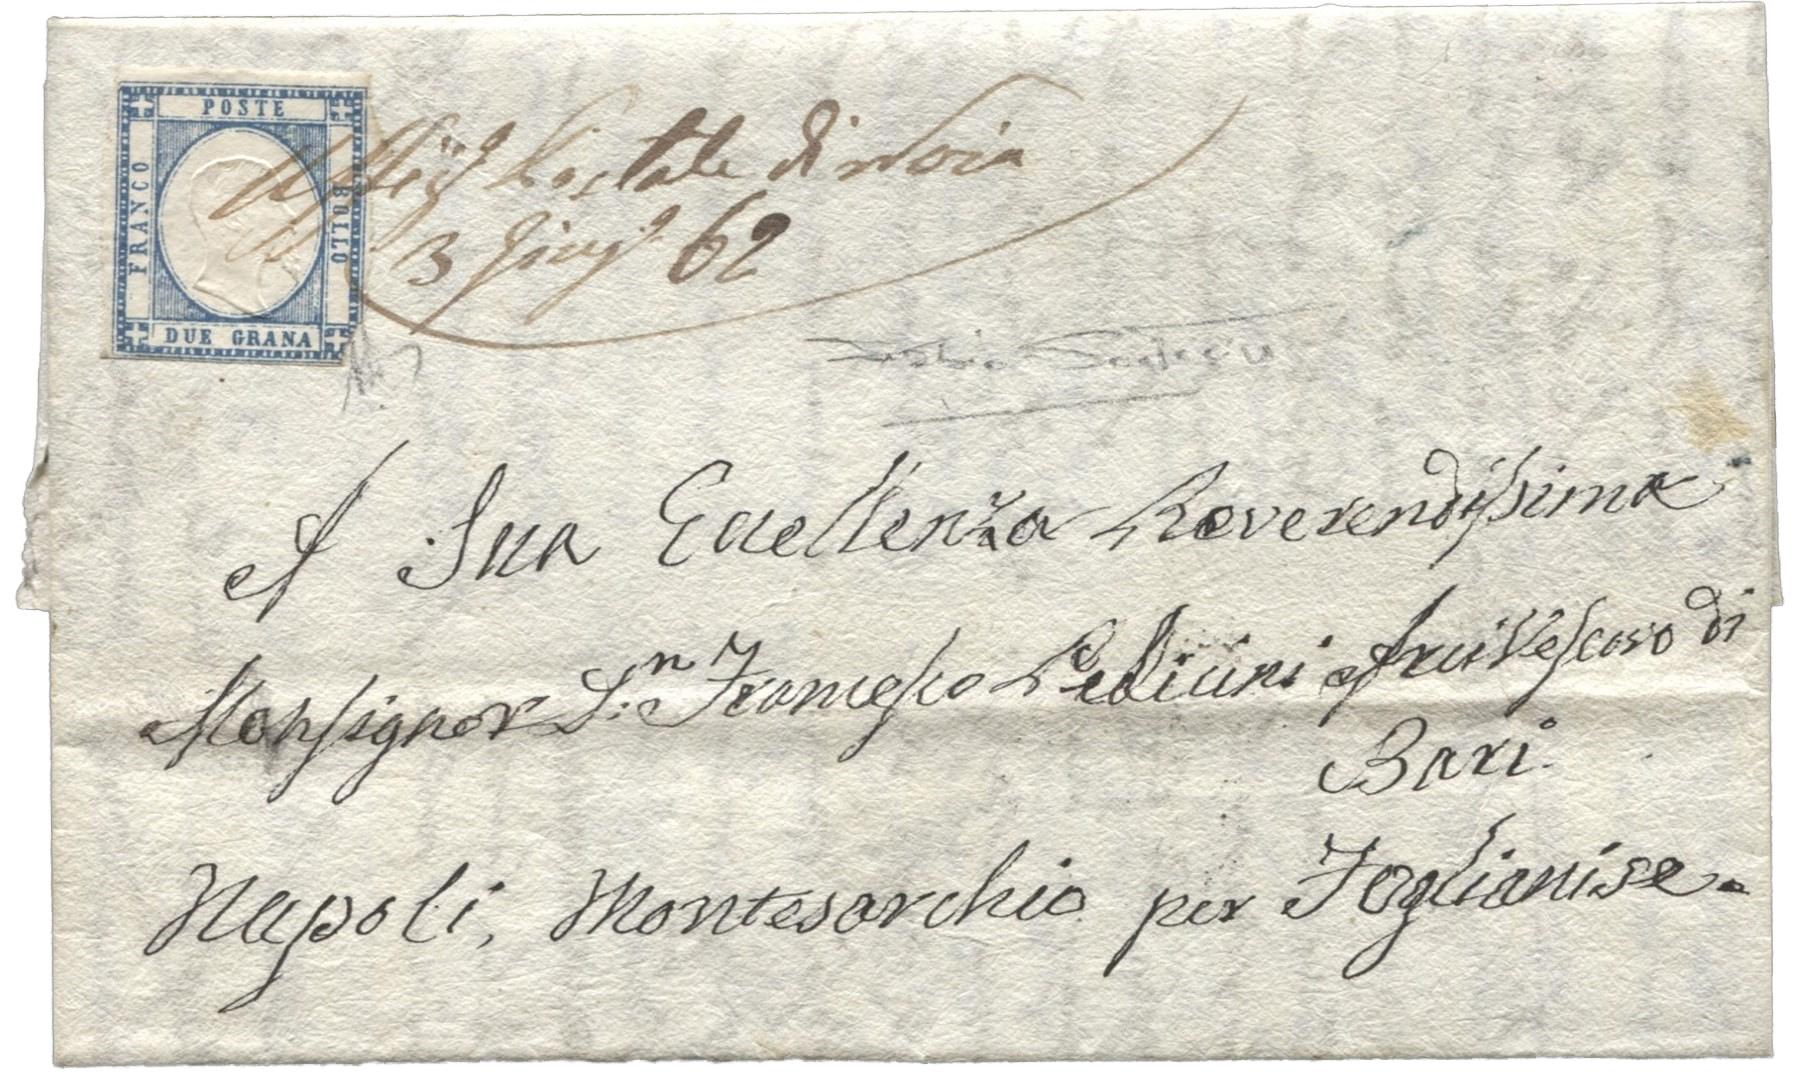 POSTE
FRANCO
BOLLO
DUE GRANA
Uffizº Postale di Noia
3 Giugº 62
A Sua Eccellenza Reverendissima
Monsignor D.n Francesco Pedicini Arcivescovo di
Bari
Napoli, Montesarchio per Foglianise.